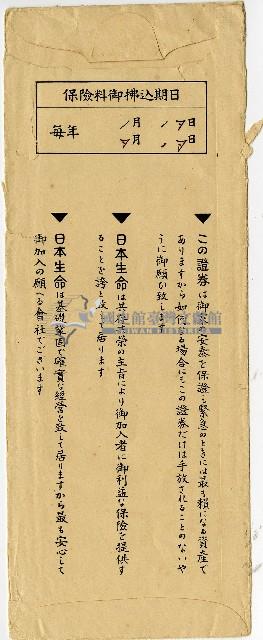 保險料御拂込期日
每年
月 日
月 日
▼この證券は御一家の安泰を保證し緊急のときには最も賴になる資產で
ありますから如何なる場合にもこの證券だけは手放されることのないや
うに御願ひ致します
▼日本生命は共存共榮の主旨により御加入者に御利益な保險を提供す
ることを誇と致して居ります
▼日本生命は基礎鞏固で確實な經營を致して居りますから最も安心して
御加入の願へる會社でございます
國立臺灣歷史博物館
NATIONAL MUSEUM OF TAIWAN HISTORY